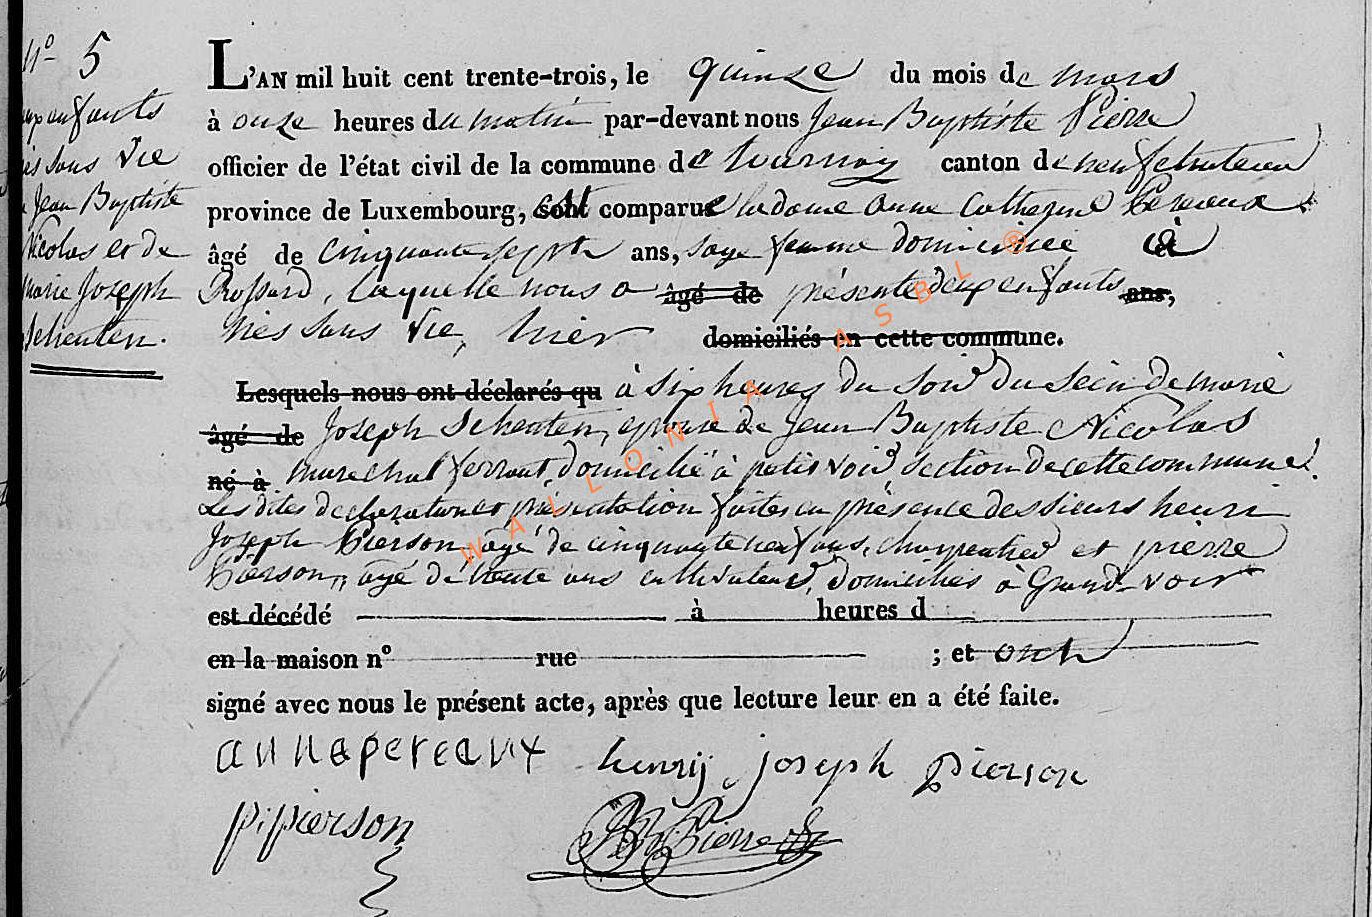 N° 5
enfants
nés sans vie
de Jean Baptiste
Nicolas et de
Marie Joseph
Schenten.
L'AN mil huit cent trente-trois, le quinze du mois de mars
à onze heures du matin par-devant nous Jean Baptiste Pierre
officier de l'état civil de la commune de tournay canton de neufchateau
province de Luxembourg, sont comparue la dame anne Catherine Pereaux
âgé de cinquante sept ans, sage femme domiciliée à
Rossard, laquelle nous a âgé de présenté deux enfants ans,
nés sans vie, hier domiciliés en cette commune.
Lesquels nous ont déclarés qu à six heures du soir du sein de marie
âgé de Joseph Schenten, epouse de Jean Baptiste Nicolas
né à marechal ferrant, domicilié à petit voir section de cette commune.
Les dites declaration et présentation faites en présence des sieurs henri
Joseph Pierson, agé de cinquante neuf ans, charpentier et pierre
Pierson, agé de trente ans cultivateur, domiciliés à Grand-voir
est décédé à heures d
en la maison n° rue ; et ont
signé avec nous le présent acte, après que lecture leur en a été faite.
anna pereaux henrij joseph pierson
p. pierson JB Pierre
WALLONIA ASBL ®